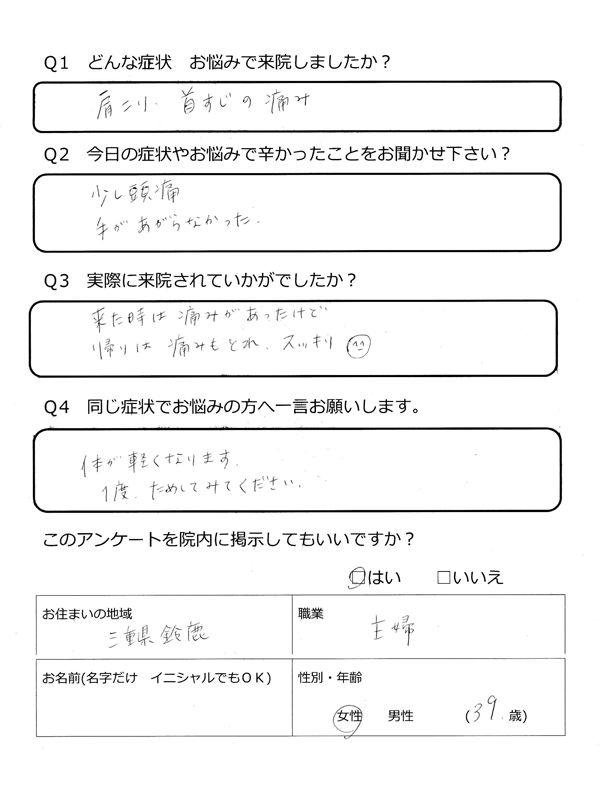 Q1　どんな症状　お悩みで来院しましたか？
肩こり・首すじの痛み
Q2　今日の症状やお悩みで辛かったことをお聞かせ下さい？
少し頭痛
手があがらなかった.
Q3　実際に来院されていかがでしたか？
来た時は痛みがあったけど
帰りは痛みもとれ、スッキリ
Q4　同じ症状でお悩みの方へ一言お願いします。
体が軽くなります.
1度、ためしてみてください.
このアンケートを院内に掲示してもいいですか？
□はい　□いいえ
お住まいの地域　職業
三重県鈴鹿　主婦
お名前(名字だけ　イニシャルでもＯＫ)　性別・年齢
女性　男性　(39.歳)